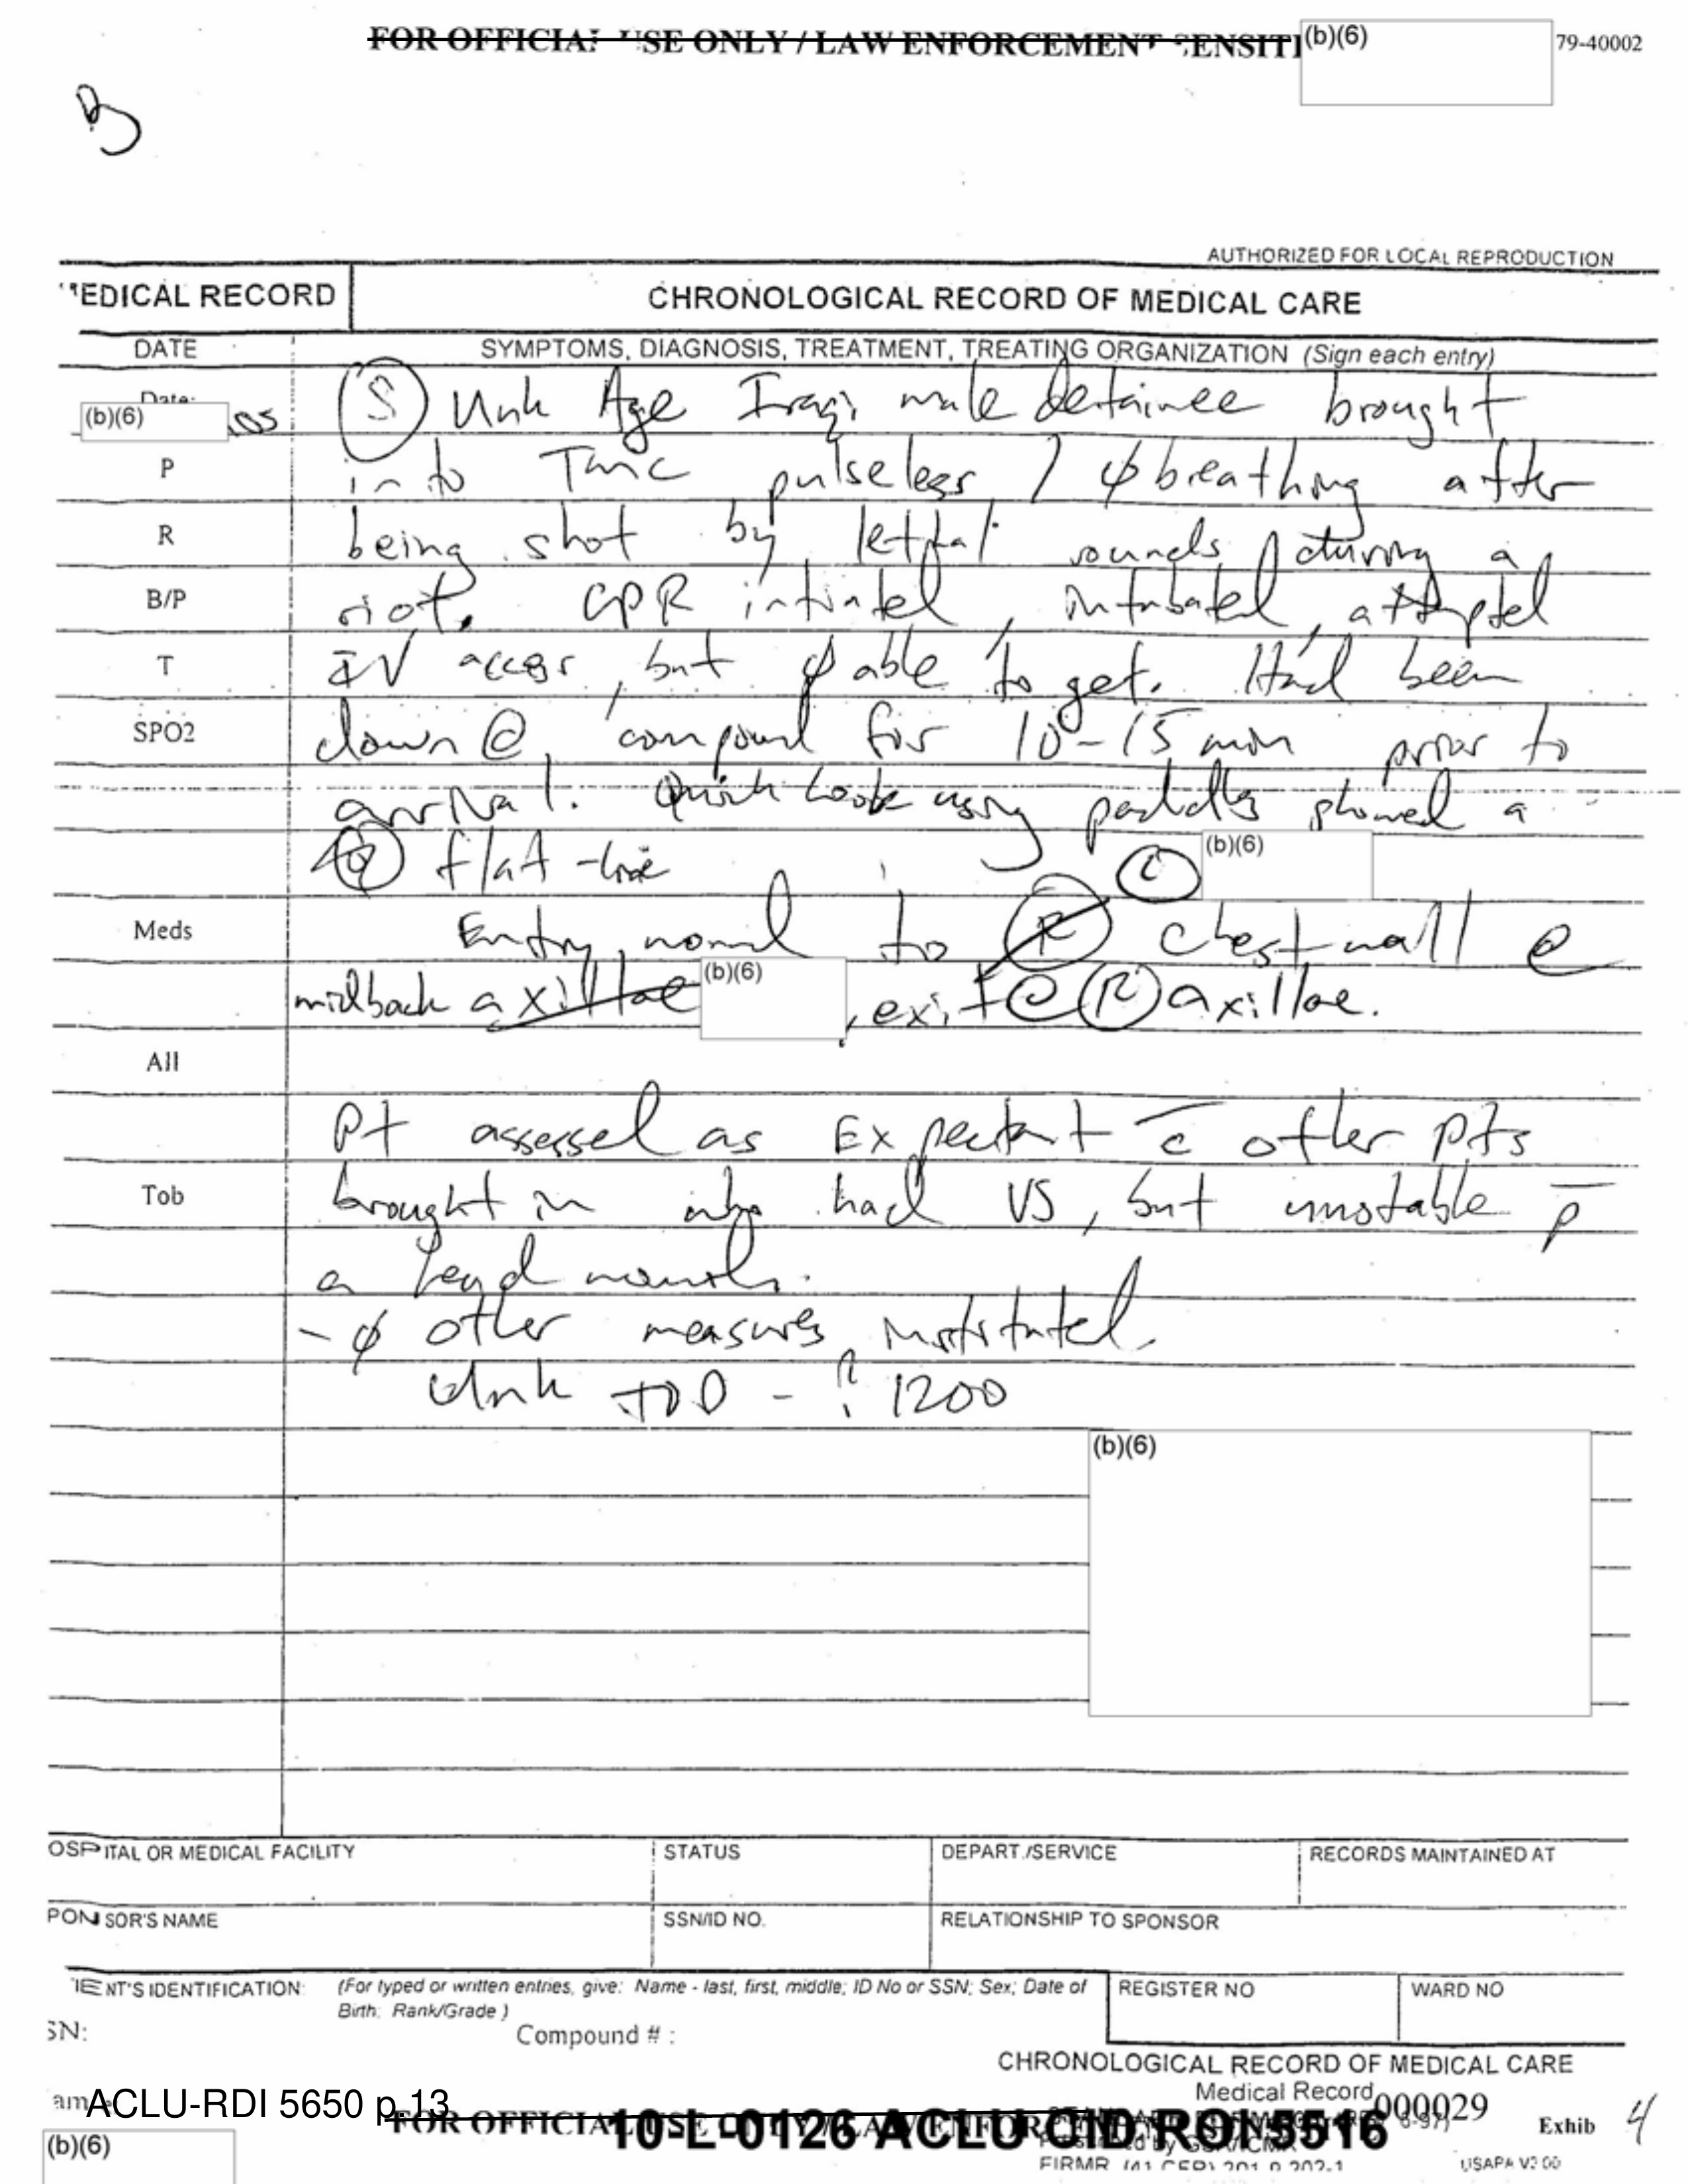 FOR OFFICIAL USE ONLY / LAW ENFORCEMENT SENSITI
(b)(6)
79-40002
AUTHORIZED FOR LOCAL REPRODUCTION
MEDICAL RECORD
CHRONOLOGICAL RECORD OF MEDICAL CARE
DATE
SYMPTOMS, DIAGNOSIS, TREATMENT, TREATING ORGANIZATION (Sign each entry)
Date:
(b)(6) 05
S Unk Age Iraqi male detainee brought
P
into TMC pulseless / ϕ breathing after
R
being shot by lethal rounds during a
B/P
riot. CPR intiated, intubated, attempted
T
IV access, but ϕ able to get. Had been
SPO2
down @ compound for 10-15 min prior to
arrival. Quick Look using paddles showed a
flat-line
L (b)(6)
Meds
Entry wound to R chest wall @
midback axillae (b)(6), exit @ R axillae.
All
Pt assessed as Expectant c̄ other pts
Tob
brought in who had VS, but unstable p̄
a head wounds.
- ϕ other measures institituted.
Unk TOD - ? 1200
(b)(6)
OSPITAL OR MEDICAL FACILITY
STATUS
DEPART./SERVICE
RECORDS MAINTAINED AT
PONSOR'S NAME
SSN/ID NO.
RELATIONSHIP TO SPONSOR
IENT'S IDENTIFICATION:
(For typed or written entries, give: Name - last, first, middle; ID No or SSN; Sex; Date of
Birth; Rank/Grade )
REGISTER NO
WARD NO
SN:
Compound # :
CHRONOLOGICAL RECORD OF MEDICAL CARE
Medical Record
000029
ACLU-RDI 5650 p.13
FOR OFFICIAL USE ONLY / LAW ENFOR
10-L-0126 ACLU CID ROI 5516
Exhib 4
(b)(6)
FIRMR (41 CFR) 201-9.202-1
USAPA V2.00